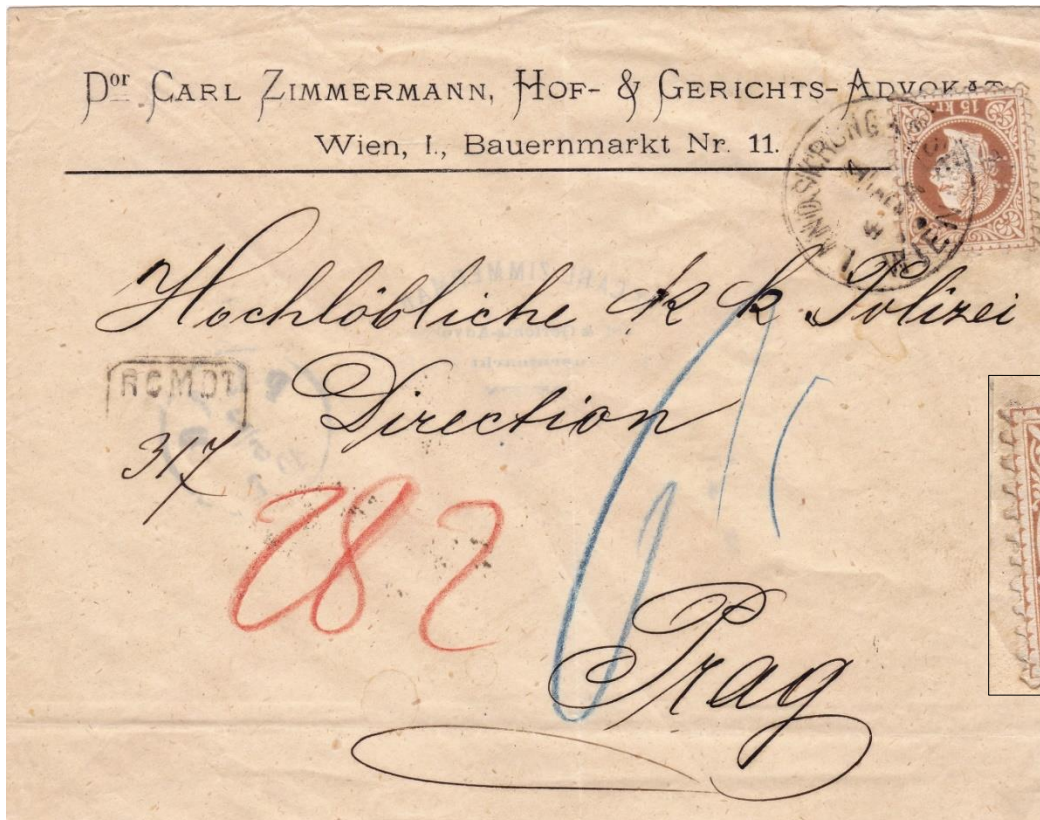 Dor. CARL ZIMMERMANN, HOF- & GERICHTS-ADVOKAT
Wien, I., Bauernmarkt Nr. 11.
15 kr.
WIEN
Hochlöbliche k k Polizei
RCMDT
Direction
317
282
Prag